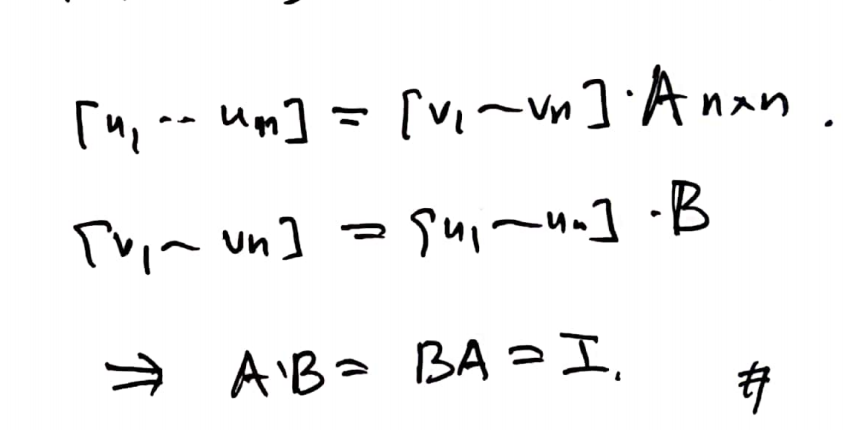 [u₁ -- uₘ] = [v₁ ~ vₙ] · A n×n .
[v₁ ~ vn] = [u₁ ~ uₙ] · B
⇒ A·B = BA = I. #